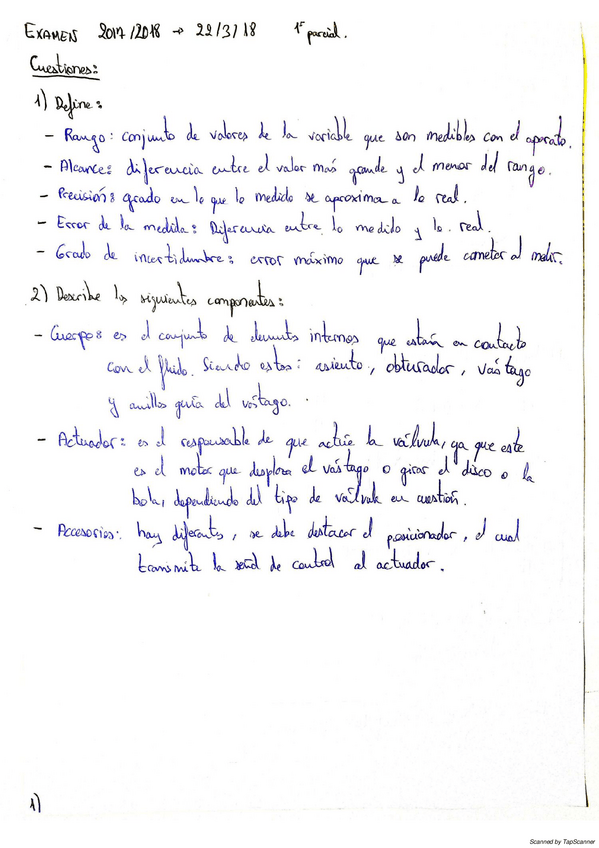 EXAMEN 2017/2018 → 22/3/18 1er parcial.
Cuestiones:
1) Define:
- Rango: conjunto de valores de la variable que son medibles con el aparato.
- Alcance: diferencia entre el valor más grande y el menor del rango.
- Precisión: grado en lo que lo medido se aproxima a lo real.
- Error de la medida: Diferencia entre lo medido y lo real.
- Grado de incertidumbre: error máximo que se puede cometer al medir.
2) Describe los siguientes componentes:
- Cuerpo: es el conjunto de elementos internos que estarán en contacto
con el fluido. Siendo estos: asiento, obturador, vástago
y anillos guía del vástago.
- Actuador: es el responsable de que actúe la válvula, ya que este
es el motor que desplaza el vástago o girar el disco o la
bola, dependiendo del tipo de válvula en cuestión.
- Accesorios: hay diferentes, se debe destacar el posicionador, el cual
transmite la señal de control al actuador.
1)
Scanned by TapScanner